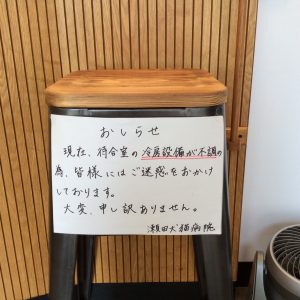 おしらせ
現在、待合室の冷房設備が不調の
為、皆様にはご迷惑をおかけ
しております。
大変、申し訳ありません。
瀬田犬猫病院